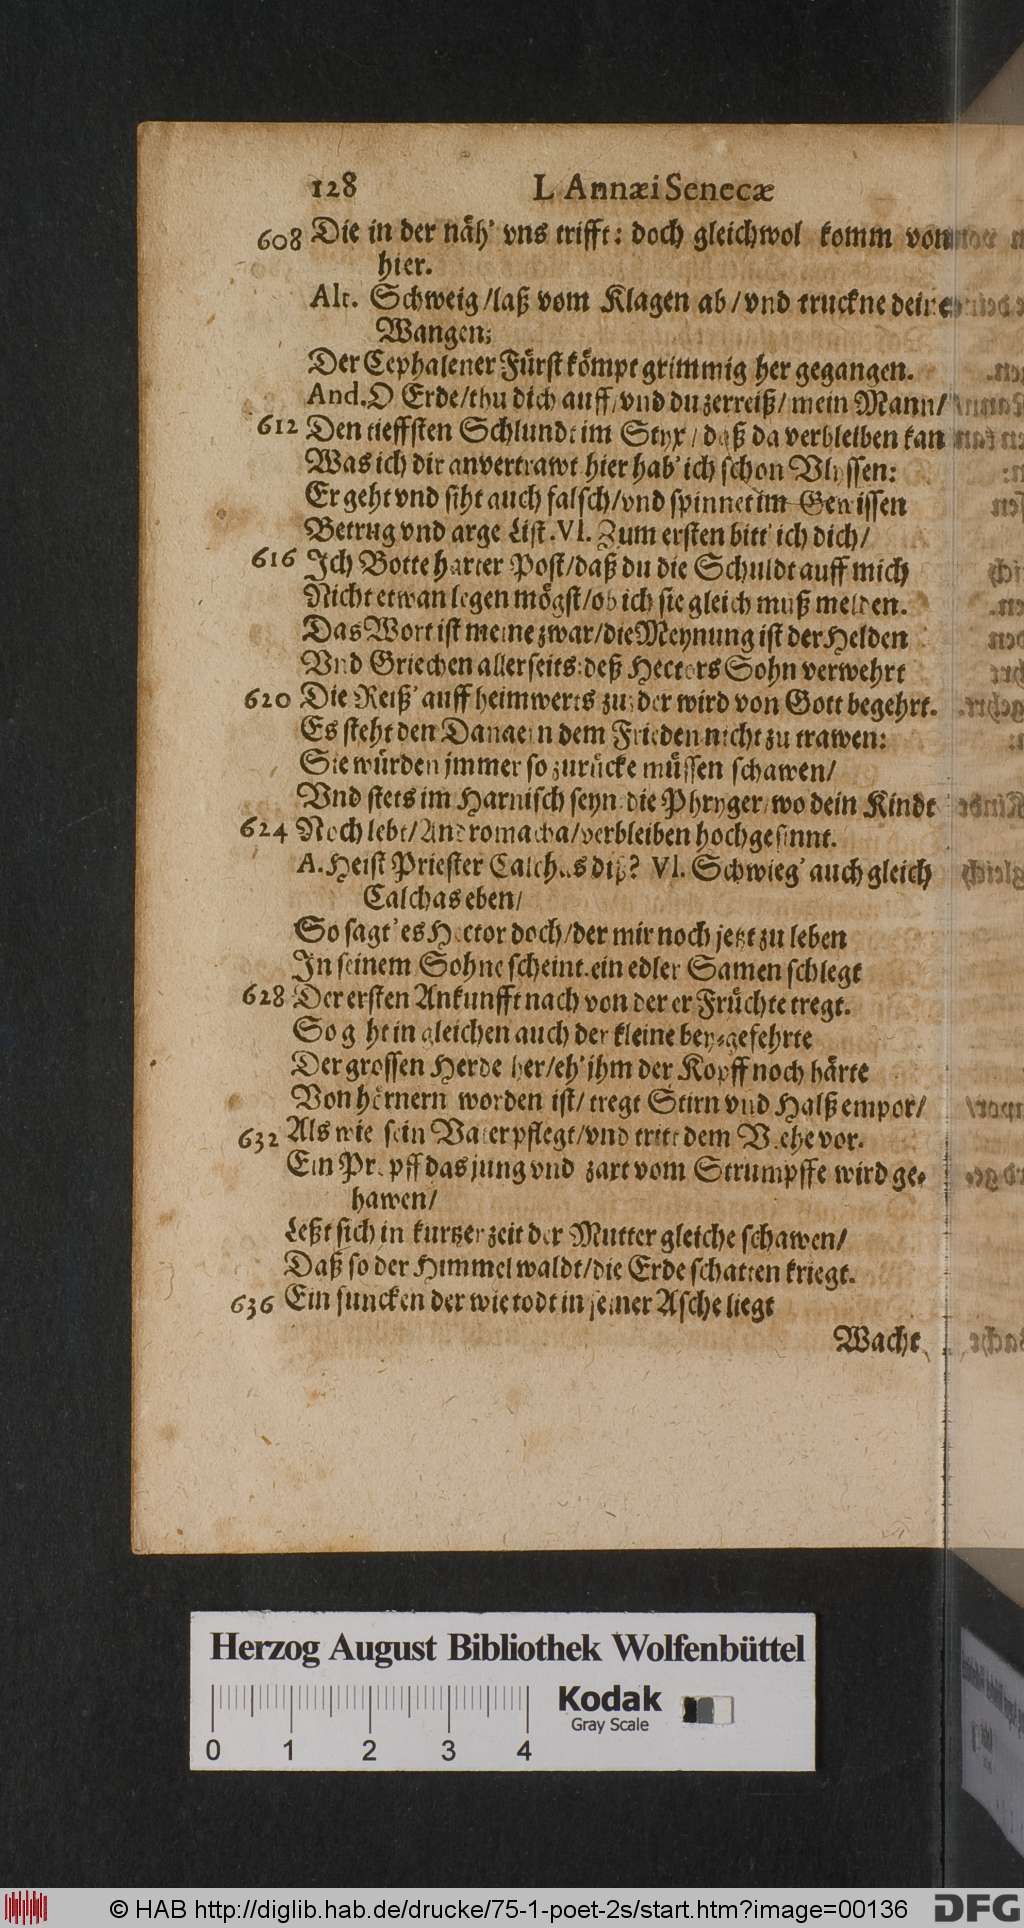 128 L Annæi Senecæ
608 Die in der näh' vns trifft: doch gleichwol komm von
hier.
Alt. Schweig/laß vom Klagen ab/vnd truckne deine
Wangen;
Der Cephalener Fürst kömpt grimmig her gegangen.
And. O Erde/thu dich auff/vnd du zerreiß/mein Mann/
612 Den tieffsten Schlundt im Styx/daß da verbleiben kan
Was ich dir anvertrawt. hier hab' ich schon Vlyssen:
Er geht vnd siht auch falsch/vnd spinnet im Gewissen
Betrug vnd arge List. Vl. Zum ersten bitt' ich dich/
616 Ich Botte harter Post/daß du die Schuldt auff mich
Nicht etwan legen mögst/ob ich sie gleich muß melden.
Das Wort ist meine zwar/die Meynung ist der Helden
Vnd Griechen allerseits: deß Hectors Sohn verwehrt
620 Die Reiß' auff heimwerts zu; der wird von Gott begehrt.
Es steht den Danaern dem Frieden nicht zu trawen:
Sie würden jmmer so zurücke müssen schawen/
Vnd stets im Harnisch seyn: die Phryger/wo dein Kindt
624 Noch lebt/Andromacha/verbleiben hochgesinnt.
A. Heist Priester Calchas diß? Vl. Schwieg' auch gleich
Calchas eben/
So sagt' es Hector doch/der mir noch jetzt zu leben
In seinem Sohne scheint. ein edler Samen schlegt
628 Der ersten Ankunfft nach von der er Früchte tregt.
So geht in gleichen auch der kleine bey-gefehrte
Der grossen Herde her/eh' jhm der Kopff noch härte
Von hörnern worden ist/tregt Stirn vnd Halß empor/
632 Als wie sein Vater pflegt/vnd tritt dem Viehe vor.
Ein Propff das jung vnd zart vom Strumpffe wird ge-
hawen/
Leßt sich in kurtzer zeit der Mutter gleiche schawen/
Daß so der Himmel waldt/die Erde schatten kriegt.
636 Ein funcken der wie todt in seiner Asche liegt
Wacht
Herzog August Bibliothek Wolfenbüttel
Kodak
Gray Scale
0 1 2 3 4
© HAB http://diglib.hab.de/drucke/75-1-poet-2s/start.htm?image=00136 DFG